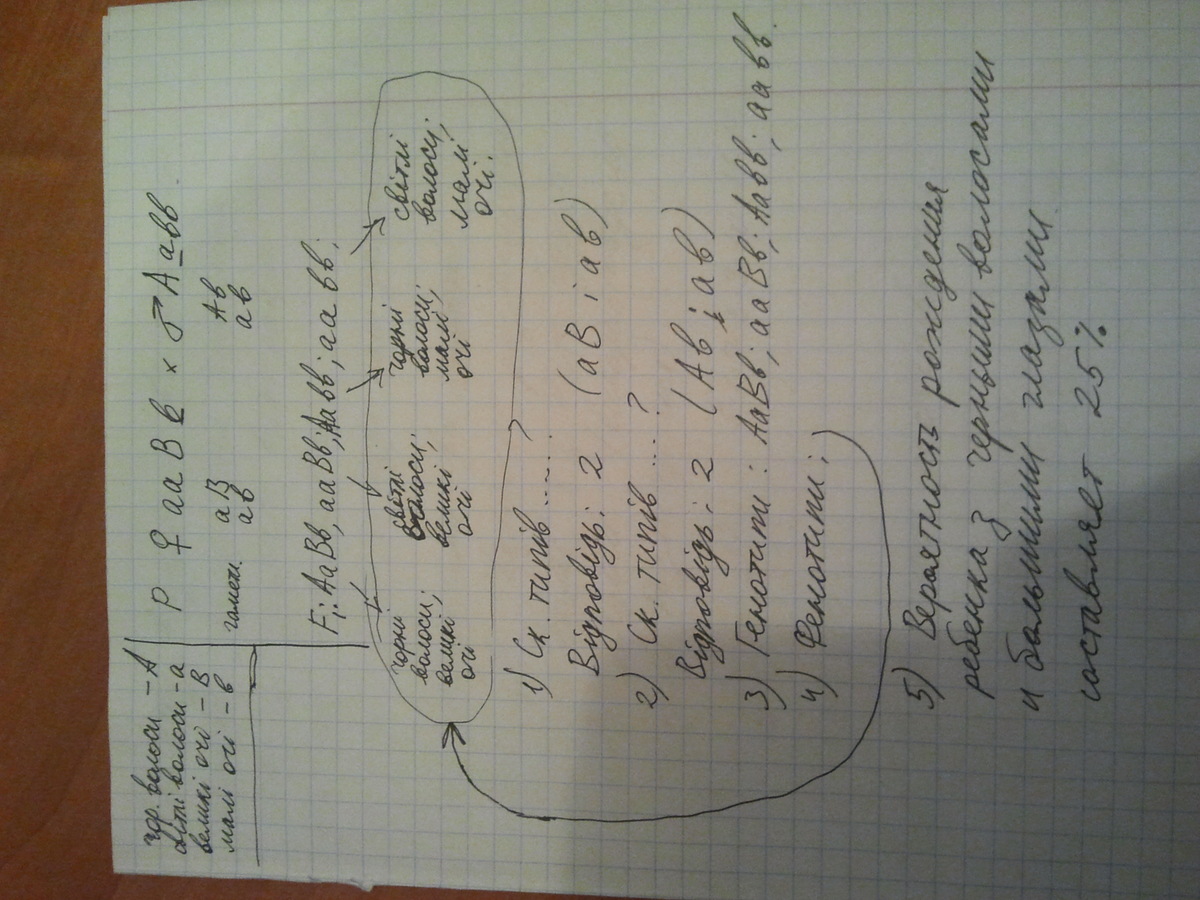 чор. волоси - А
світлі волоси - а
великі очі - В
малі очі - в
Р ♀ ааВв × ♂ Аавв.
гамети. аВ Ав
ав ав
F₁: АаВв, ааВв; Аавв; аавв;
чорні волоси; великі очі
світлі волоси; великі очі
чорні волоси; малі очі
світлі волоси; малі очі.
1) Ск. типів ......?
Відповідь: 2 (аВ і ав)
2) Ск. типів ....?
Відповідь: 2 (Ав і ав)
3) Генотипи: АаВв; ааВв; Аавв; аавв.
4) Фенотипи;
5) Вероятность рождения
ребенка з черными волосами
и большими глазами
составляет 25%